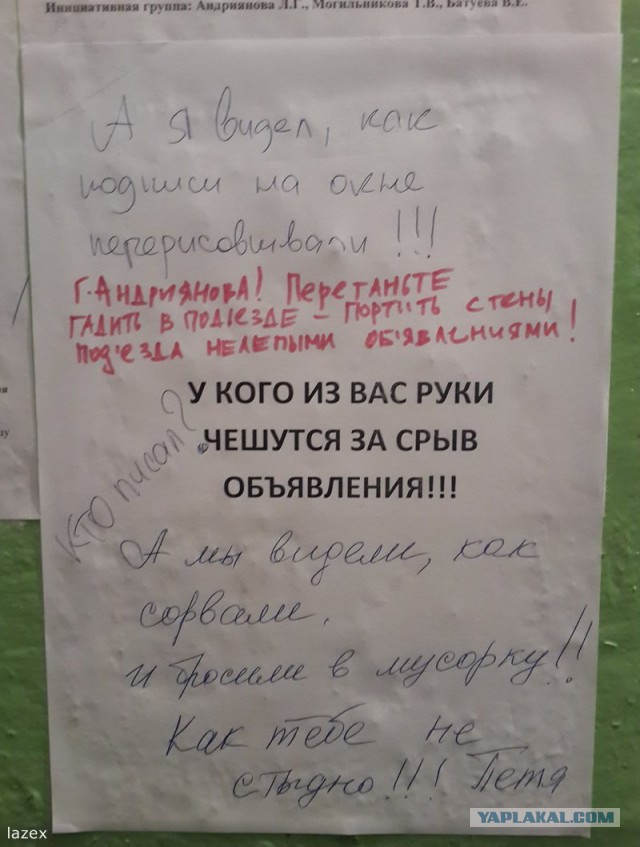 Инициативная группа: Андриянова Л.Г., Могильникова Т.В., Батуева В.Е.
А я видел, как
подписи на окне
перерисовывали !!!
Г. Андриянова! Перестаньте
гадить в подъезде – портить стены
под'езда нелепыми об'явлениями!
У КОГО ИЗ ВАС РУКИ
ЧЕШУТСЯ ЗА СРЫВ
ОБЪЯВЛЕНИЯ!!!
Кто писал?
А мы видели, как
сорвали.
и бросили в мусорку!!
Как тебе не
стыдно!!! Петя
YAPLAKAL.COM
lazex